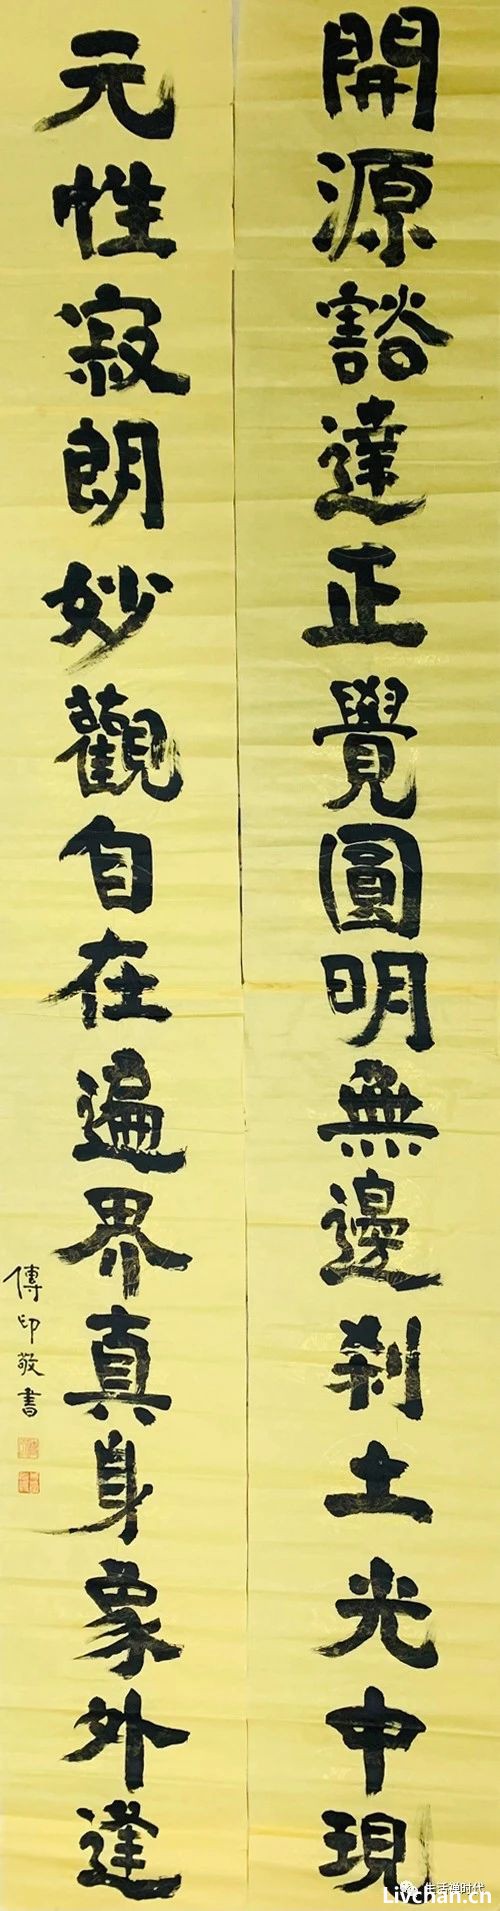 開源豁達正覺圓明無邊刹土光中現
元性寂朗妙觀自在遍界真身象外逢
傳印敬書
生活禅时代
Livchan.cn